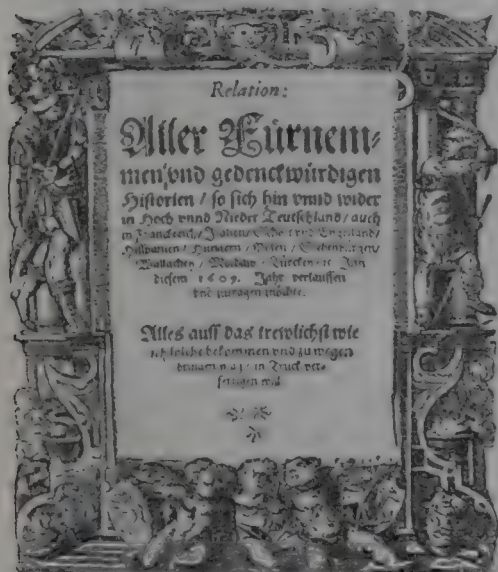 Relation:
Aller Fürnem-
men/ vnd gedenckwürdigen
Historien / so sich hin vnnd wider
in Hoch vnnd Nieder Teutschland/ auch
in Franckreich/ Italien/ Schott vnd Engelland/
Hisspanien / Hungern / Polen / Siebenbürgen/
Wallachey / Moldaw / Türckey / ꝛc. Inn
diesem 1609. Jahr verlauffen
vnd zutragen möchte.
Alles auff das trewlichst wie
ich solche bekommen vnd zu wegen
bringen mag / in Truck ver-
fertigen will.